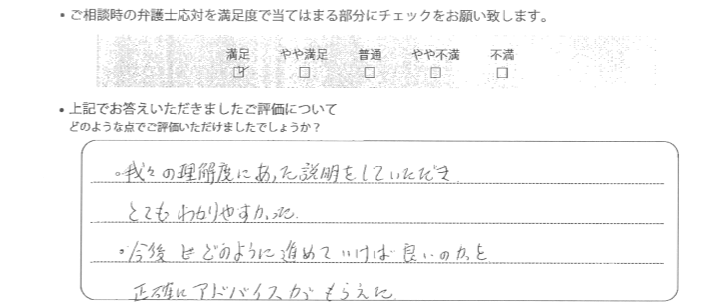 ・ご相談時の弁護士応対を満足度で当てはまる部分にチェックをお願い致します。
満足 やや満足 普通 やや不満 不満
☑ □ □ □ □
・上記でお答えいただきましたご評価について
どのような点でご評価いただけましたでしょうか？
。我々の理解度にあった説明をしていただき
とてもわかりやすかった
。今後どのように進めていけば良いのかを
正確にアドバイスがもらえた